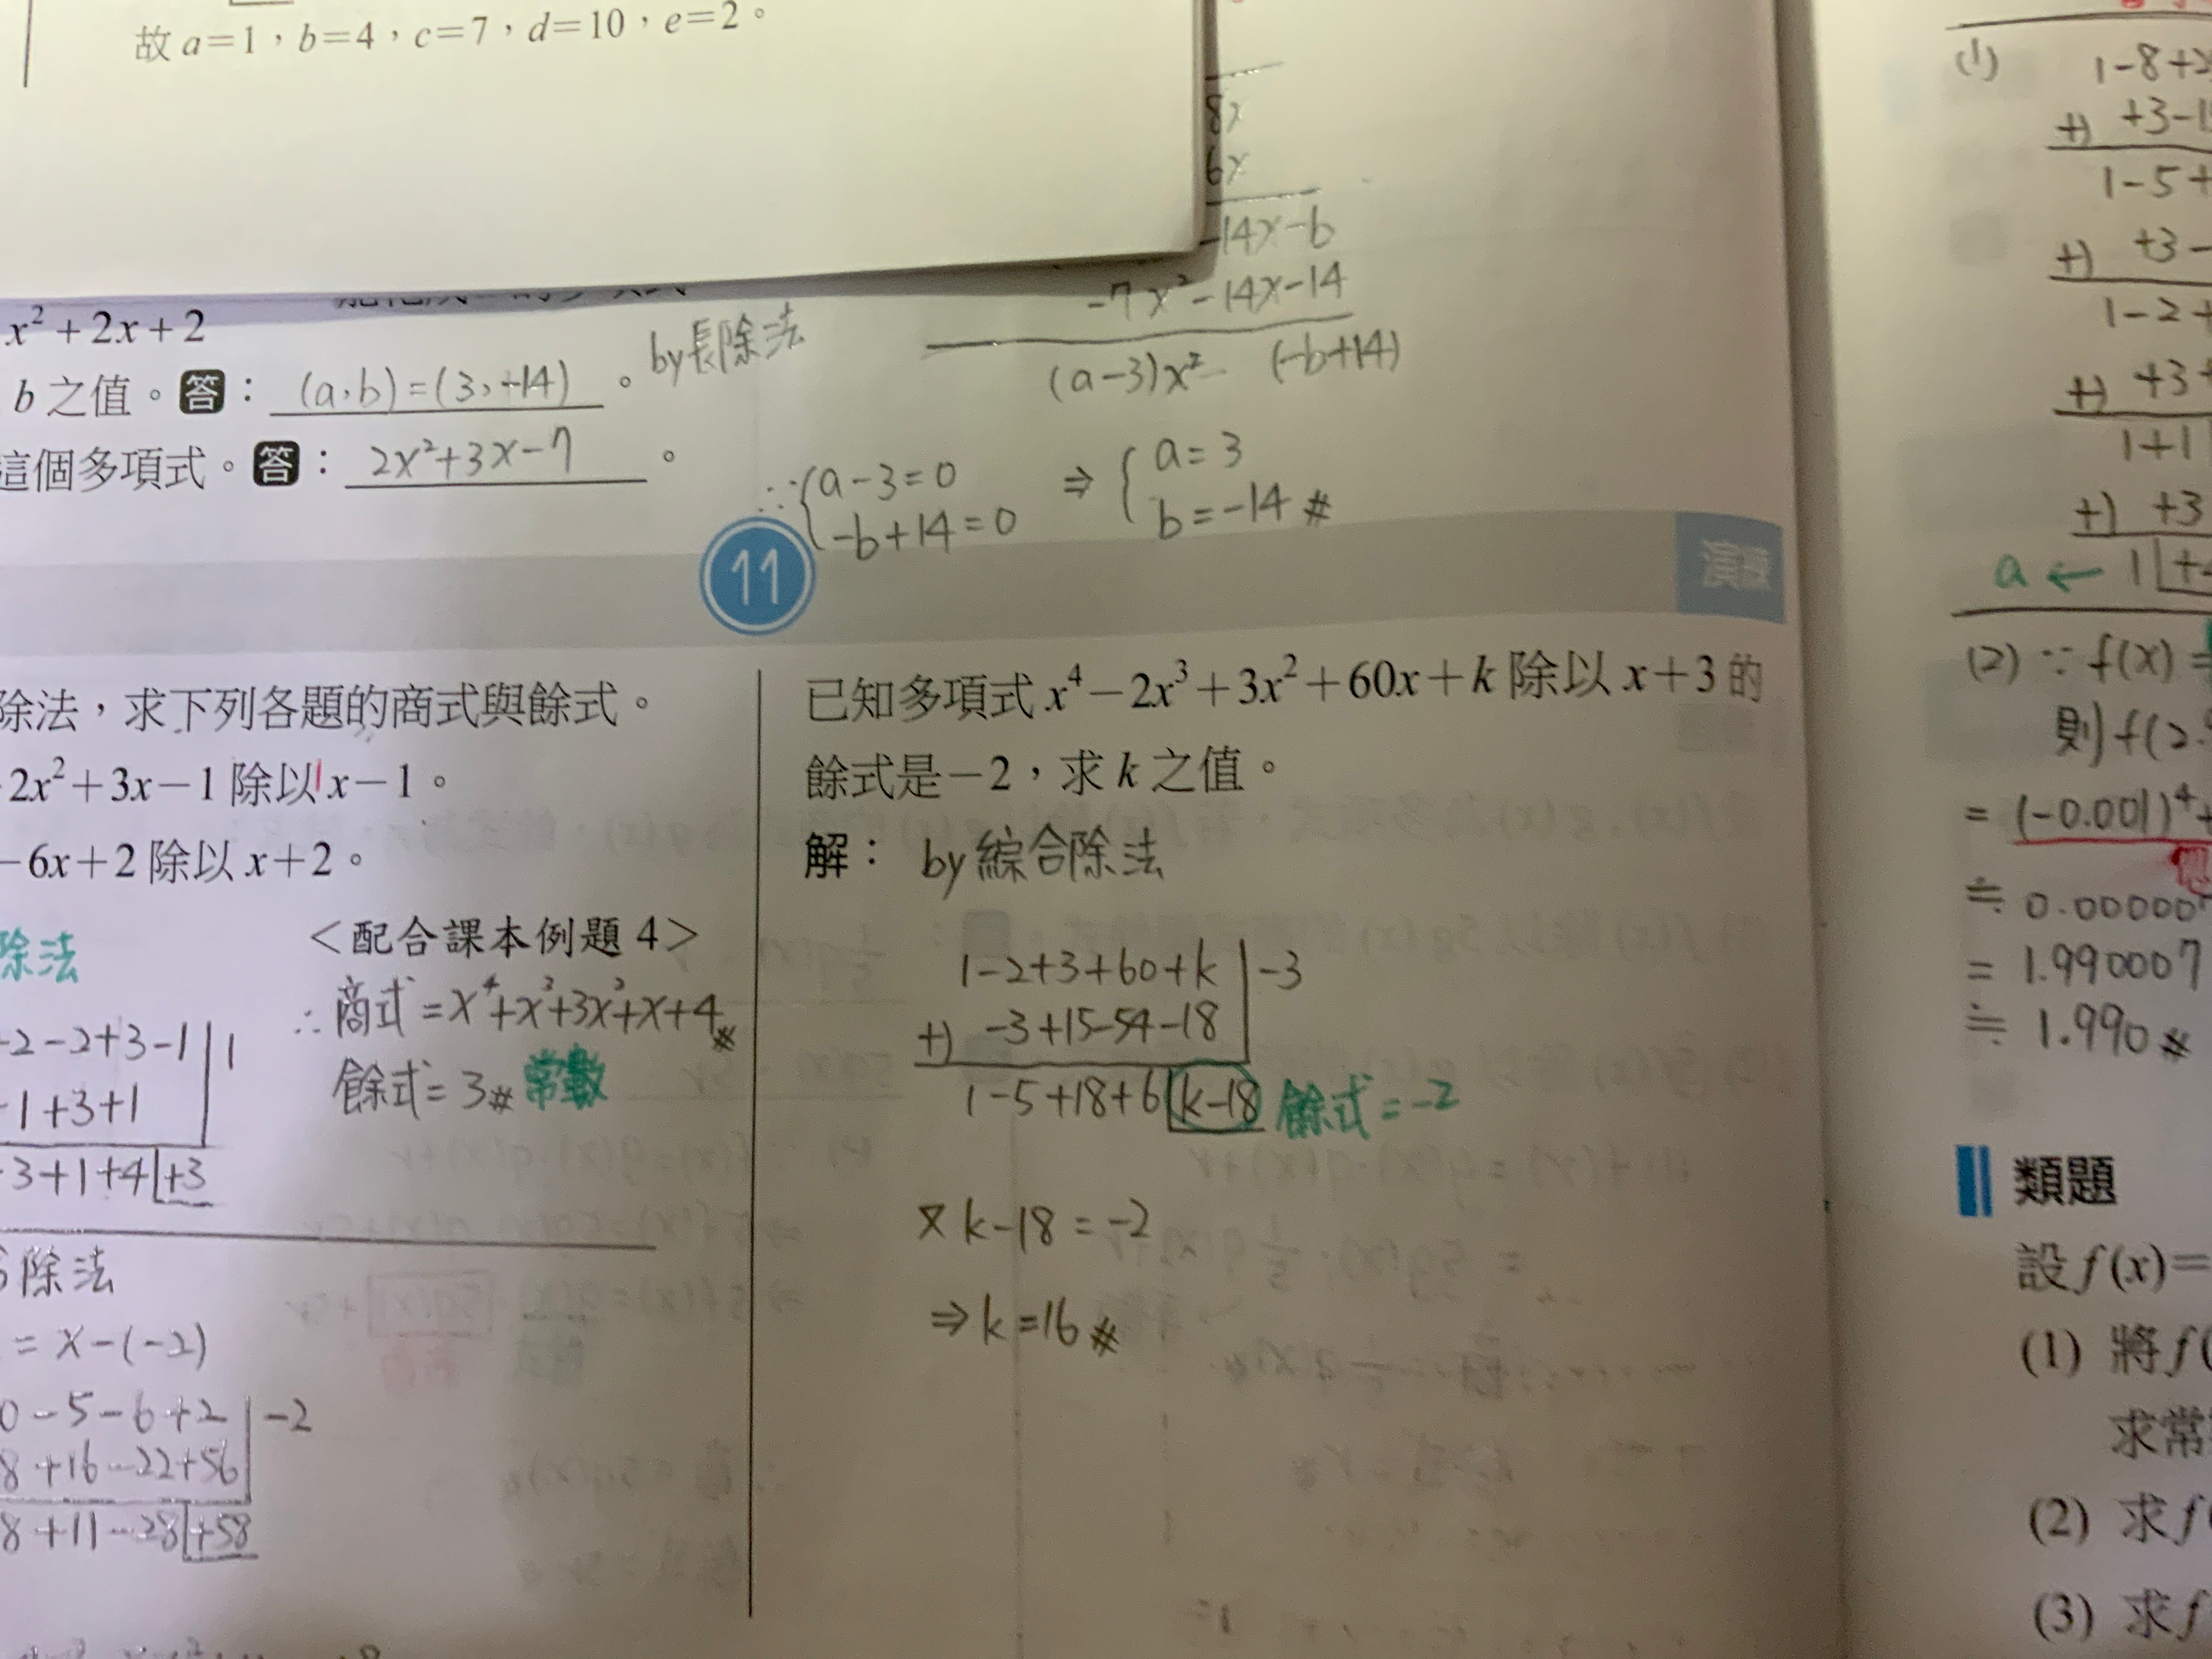 故 a=1,b=4,c=7,d=10,e=2。
8x
6x
-14x-b
-7x²-14x-14
(a-3)x²- (-b+14)
x²+2x+2
b 之值。答: (a,b)=(3,-14) 。 by長除法
這個多項式。答: 2x²+3x-7 。
∴{a-3=0 ⇒ {a=3
-b+14=0 b=-14 #
11
演練
除法,求下列各題的商式與餘式。
2x²+3x-1 除以 x-1。
-6x+2 除以 x+2。
除法
<配合課本例題 4>
∴商式=x⁴+x³+3x²+x+4#
餘式=3# 常數
-2-2+3-1 1
-1+3+1
3+1+4 +3
除法
= x-(-2)
0-5-6+2 -2
8+16-22+56
8+11-28 +58
已知多項式 x⁴-2x³+3x²+60x+k 除以 x+3 的
餘式是-2,求 k 之值。
解: by 綜合除法
1-2+3+60+k -3
+) -3+15-54-18
1-5+18+6 k-18 餘式=-2
又 k-18=-2
⇒ k=16 #
(1) 1-8+2
+) +3-1
1-5+
+) +3-
1-2+
+) +3+
1+1
+) +3
a ← 1 +
(2) ∵ f(x)=
則 f(2.
= (-0.001)⁴+
≒ 0.00000
= 1.990007
≒ 1.990 #
類題
設 f(x)=
(1) 將 f(
求常
(2) 求 f(
(3) 求 f